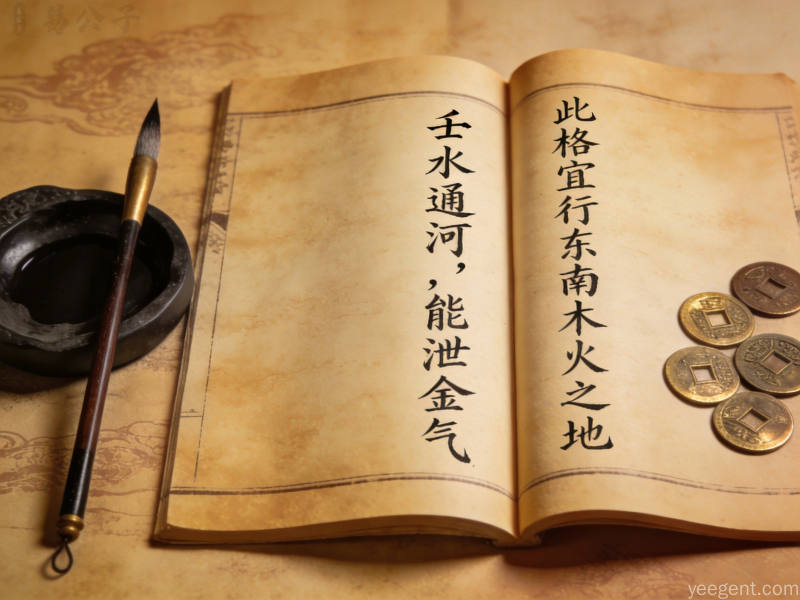 易公子
此格宜行东南木火之地
壬水通河，，能泄金气
yeegent.com